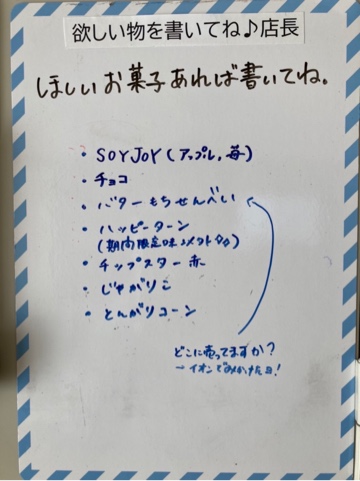 欲しい物を書いてね♪店長
ほしいお菓子あれば書いてね。
・SOYJOY(アップル,苺)
・チョコ
・バターもちせんべい
・ハッピーターン
(期間限定味
・チップスター赤
・じゃがりこ
・とんがりコーン
どこに売ってますか?
→イオンでみかけたヨ!